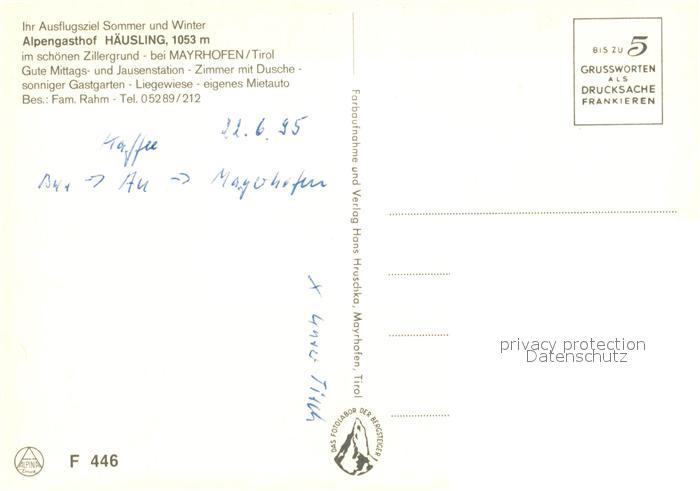 Ihr Ausflugsziel Sommer und Winter
Alpengasthof HÄUSLING, 1053 m
im schönen Zillergrund - bei MAYRHOFEN/Tirol
Gute Mittags- und Jausenstation - Zimmer mit Dusche -
sonniger Gastgarten - Liegewiese - eigenes Mietauto
Bes.: Fam. Rahm - Tel. 05289/212
22.6.95
Kaffee
Bus → Au → Mayrhofen
Farbaufnahme und Verlag Hans Hruschka, Mayrhofen, Tirol
BIS ZU 5
GRUSSWORTEN
ALS
DRUCKSACHE
FRANKIEREN
privacy protection
Datenschutz
DAS FOTOLABOR DER BERGSTEIGER
ALPINA
F 446